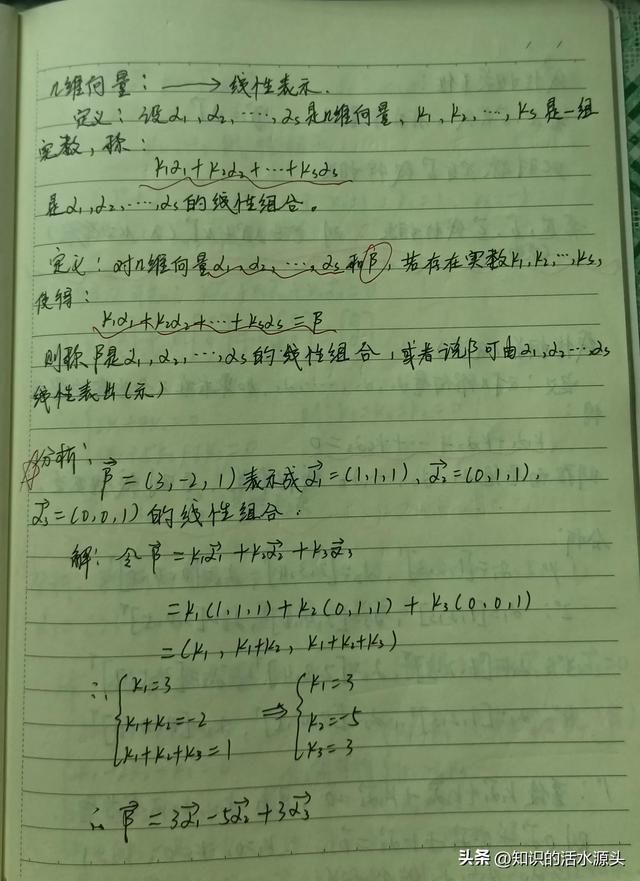 n维向量：⟶ 线性表示.
定义：设α₁,α₂,…,αs是n维向量，k₁,k₂,…,ks是一组
实数，称：
k₁α₁+k₂α₂+…+ksαs
是α₁,α₂,…,αs的线性组合。
定义：对n维向量α₁,α₂,…,αs和β，若存在实数k₁,k₂,…,ks,
使得：
k₁α₁+k₂α₂+…+ksαs=β
则称β是α₁,α₂,…,αs的线性组合，或者说β可由α₁,α₂…,αs
线性表出(示)
☆分析：
β⃗=(3,-2,1)表示成α⃗₁=(1,1,1)、α⃗₂=(0,1,1),
α⃗₃=(0,0,1)的线性组合.
解：令β⃗=k₁α⃗₁+k₂α⃗₂+k₃α⃗₃
=k₁(1,1,1)+k₂(0,1,1)+k₃(0,0,1)
=(k₁,k₁+k₂,k₁+k₂+k₃)
∴ { k₁=3 { k₁=3
k₁+k₂=-2 ⇒ k₂=-5
k₁+k₂+k₃=1 k₃=3
∴ β⃗=3α⃗₁-5α⃗₂+3α⃗₃
头条 @知识的活水源头